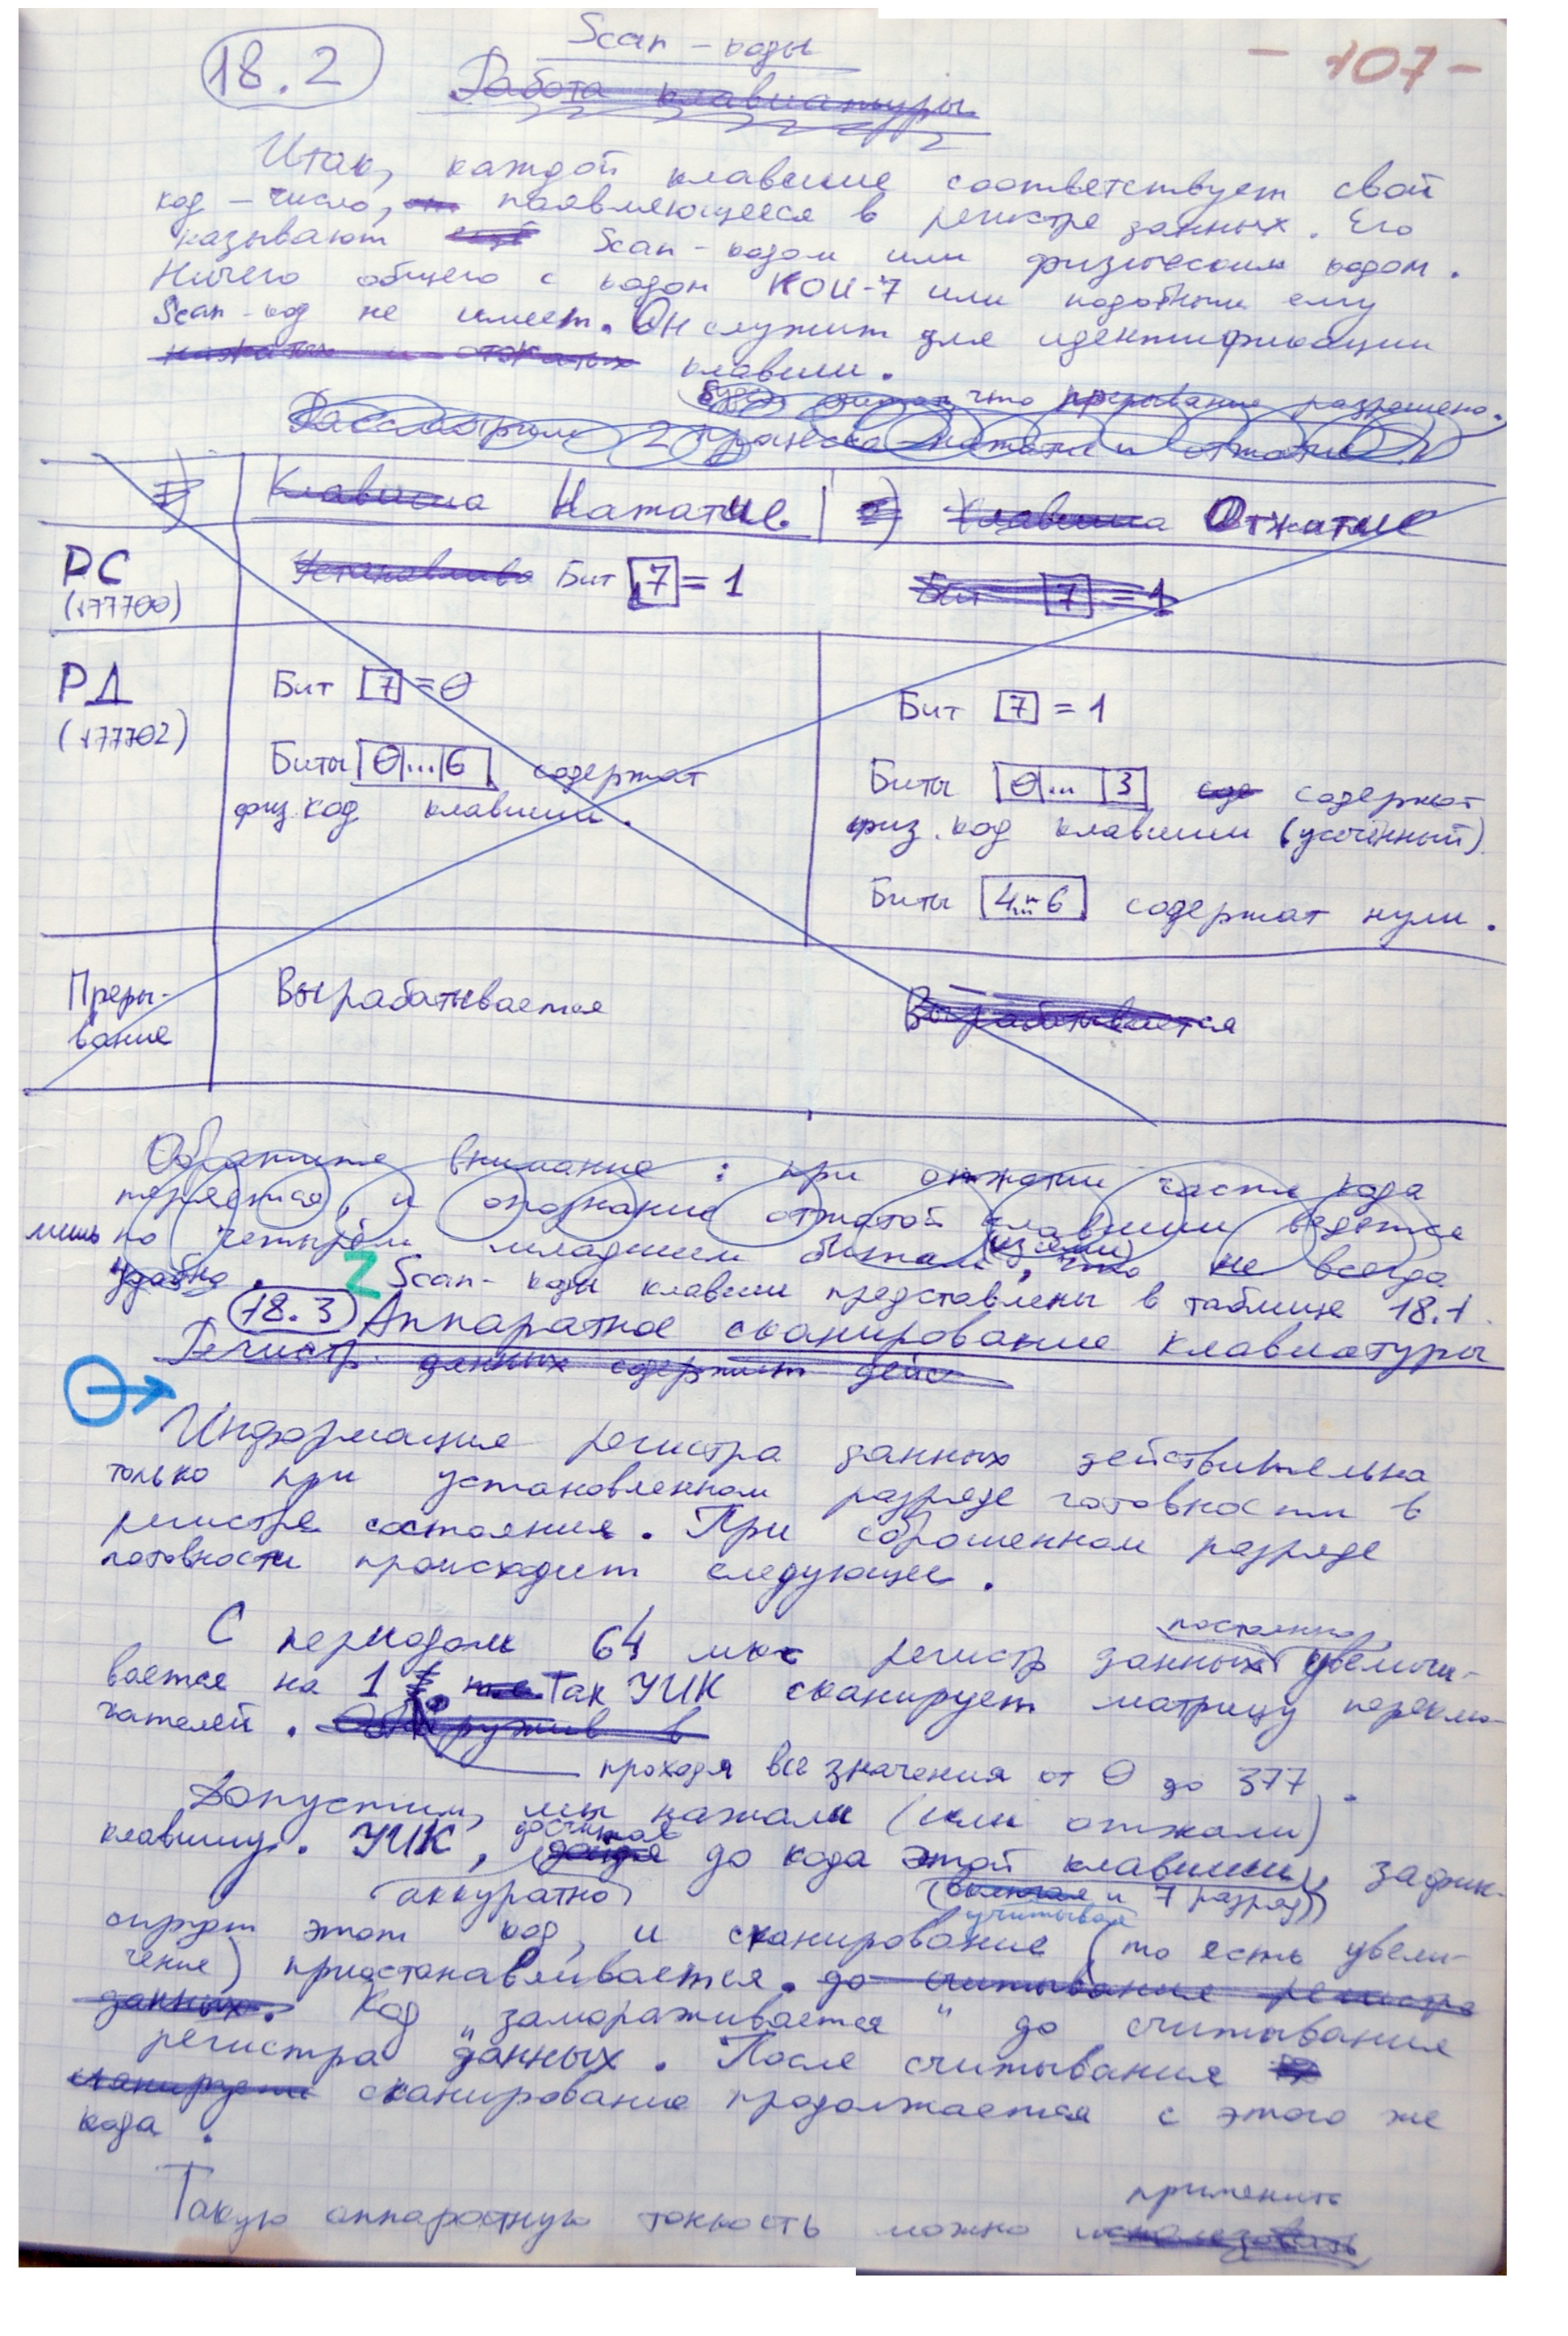 18.2
Scan - коды
- 107 -
Работа клавиатуры
Итак, каждой клавише соответствует свой
код - число, появляющееся в регистре данных. Его
называют ещё Scan - кодом или физическим кодом.
Ничего общего с кодом КОИ-7 или подобным ему
Scan - код не имеет. Он служит для идентификации
нажатых и отжатых клавиш.
Будем считать, что прерывание разрешено.
Рассмотрим 2 процесса нажатия и отжатия
Клавиша Нажатие. Клавиша Отжатие
РС
(177700)
Установлено Бит 7 = 1
Бит 7 = 1
РД
(177702)
Бит 7 = 0
Биты 0...6 содержат
физ. код клавиши.
Бит 7 = 1
Биты 0...3 содержат
физ. код клавиши (усечённый).
Биты 4...6 содержат нули.
Преры-
вание
Вырабатывается
Вырабатывается
Обратите внимание : при отжатии часть кода
теряется, и опознание отжатой клавиши ведется
лишь по четырём младшим битам, что не всегда
удобно.
Z Scan - коды клавиш представлены в таблице 18.1.
18.3 Аппаратное сканирование клавиатуры
Регистр данных содержит дейс
Информация регистра данных действительна
только при установленном разряде готовности в
регистре состояния. При сброшенном разряде
готовности происходит следующее.
постоянно
С периодом 64 мкс регистр данных увеличи-
вается на 1 т.е. Так УИК сканирует матрицу переклю-
чателей. Обнаружив в
проходя все значения от 0 до 377.
Допустим, мы нажали (или отжали)
клавишу. УИК, досчитав дойдя до кода этой клавиши, зафик-
(аккуратно)
(включая и 7 разряд)
учитывая
сирует этот код, и сканирование (то есть увели-
чение) приостанавливается. до считывания регистра
данных. Код „замораживается" до считывания
регистра данных. После считывания
сканирует сканирование продолжается с этого же
кода.
применить
Такую аппаратную тонкость можно использовать